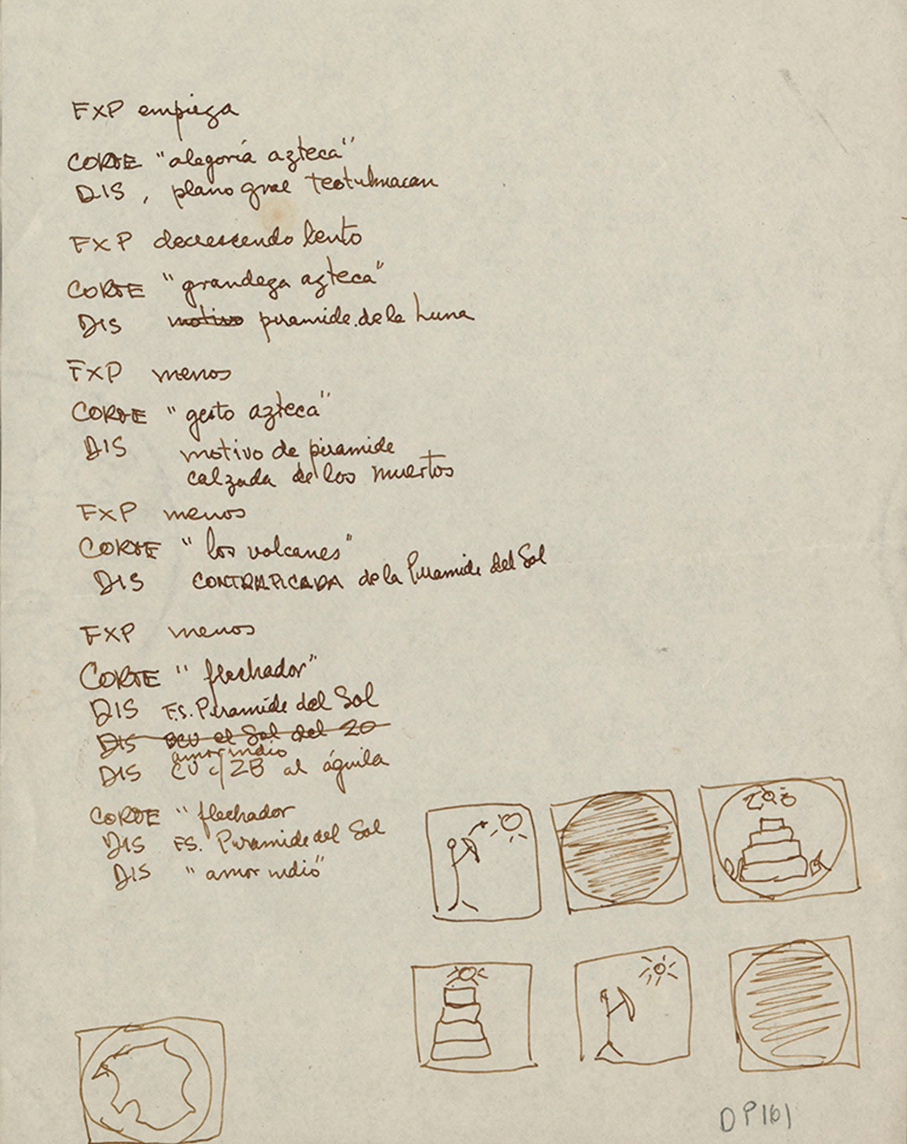 FXP empieza
CORTE "alegoría azteca"
DIS, plano gral teotuhuacan
FXP decrescendo lento
CORTE "grandeza azteca"
DIS motivo piramide de la Luna
FXP menos
CORTE "gesto azteca"
DIS motivo de piramide
calzada de los muertos
FXP menos
CORTE "los volcanes"
DIS CONTRAPICADA de la Piramide del Sol
FXP menos
CORTE "flechador"
DIS F.S. Piramide del Sol
DIS BCU el Sol del 20
amor indio
DIS CU c/ZB al águila
CORTE "flechador
DIS FS. Piramide del Sol
DIS "amor indio"